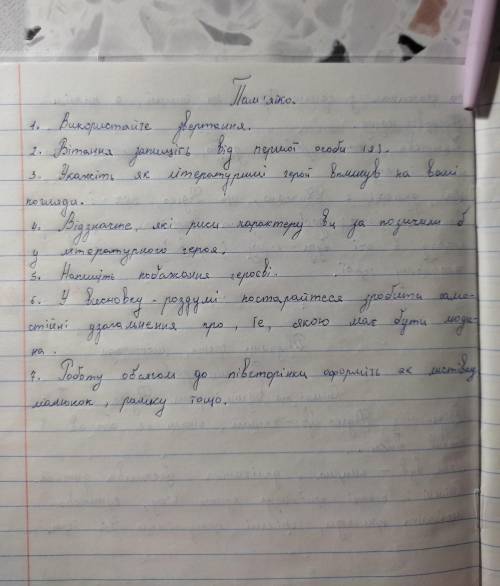 Пам'ятко.
1. Використайте звертання.
2. Вітання запишіть від першої особи (я).
3. Укажіть як літературний герой вплинув на ваші
погляди.
4. Відзначте, які риси характеру ви за позичили б
у літературного героя.
5. Напишіть побажання героєві.
6. У висновку - роздумі постарайтеся зробити само-
стійні узагальнення про, те, якою має бути люди-
на.
7. Роботу обсягом до півсторінки оформіть як листівку
малюнок, рамку тощо.